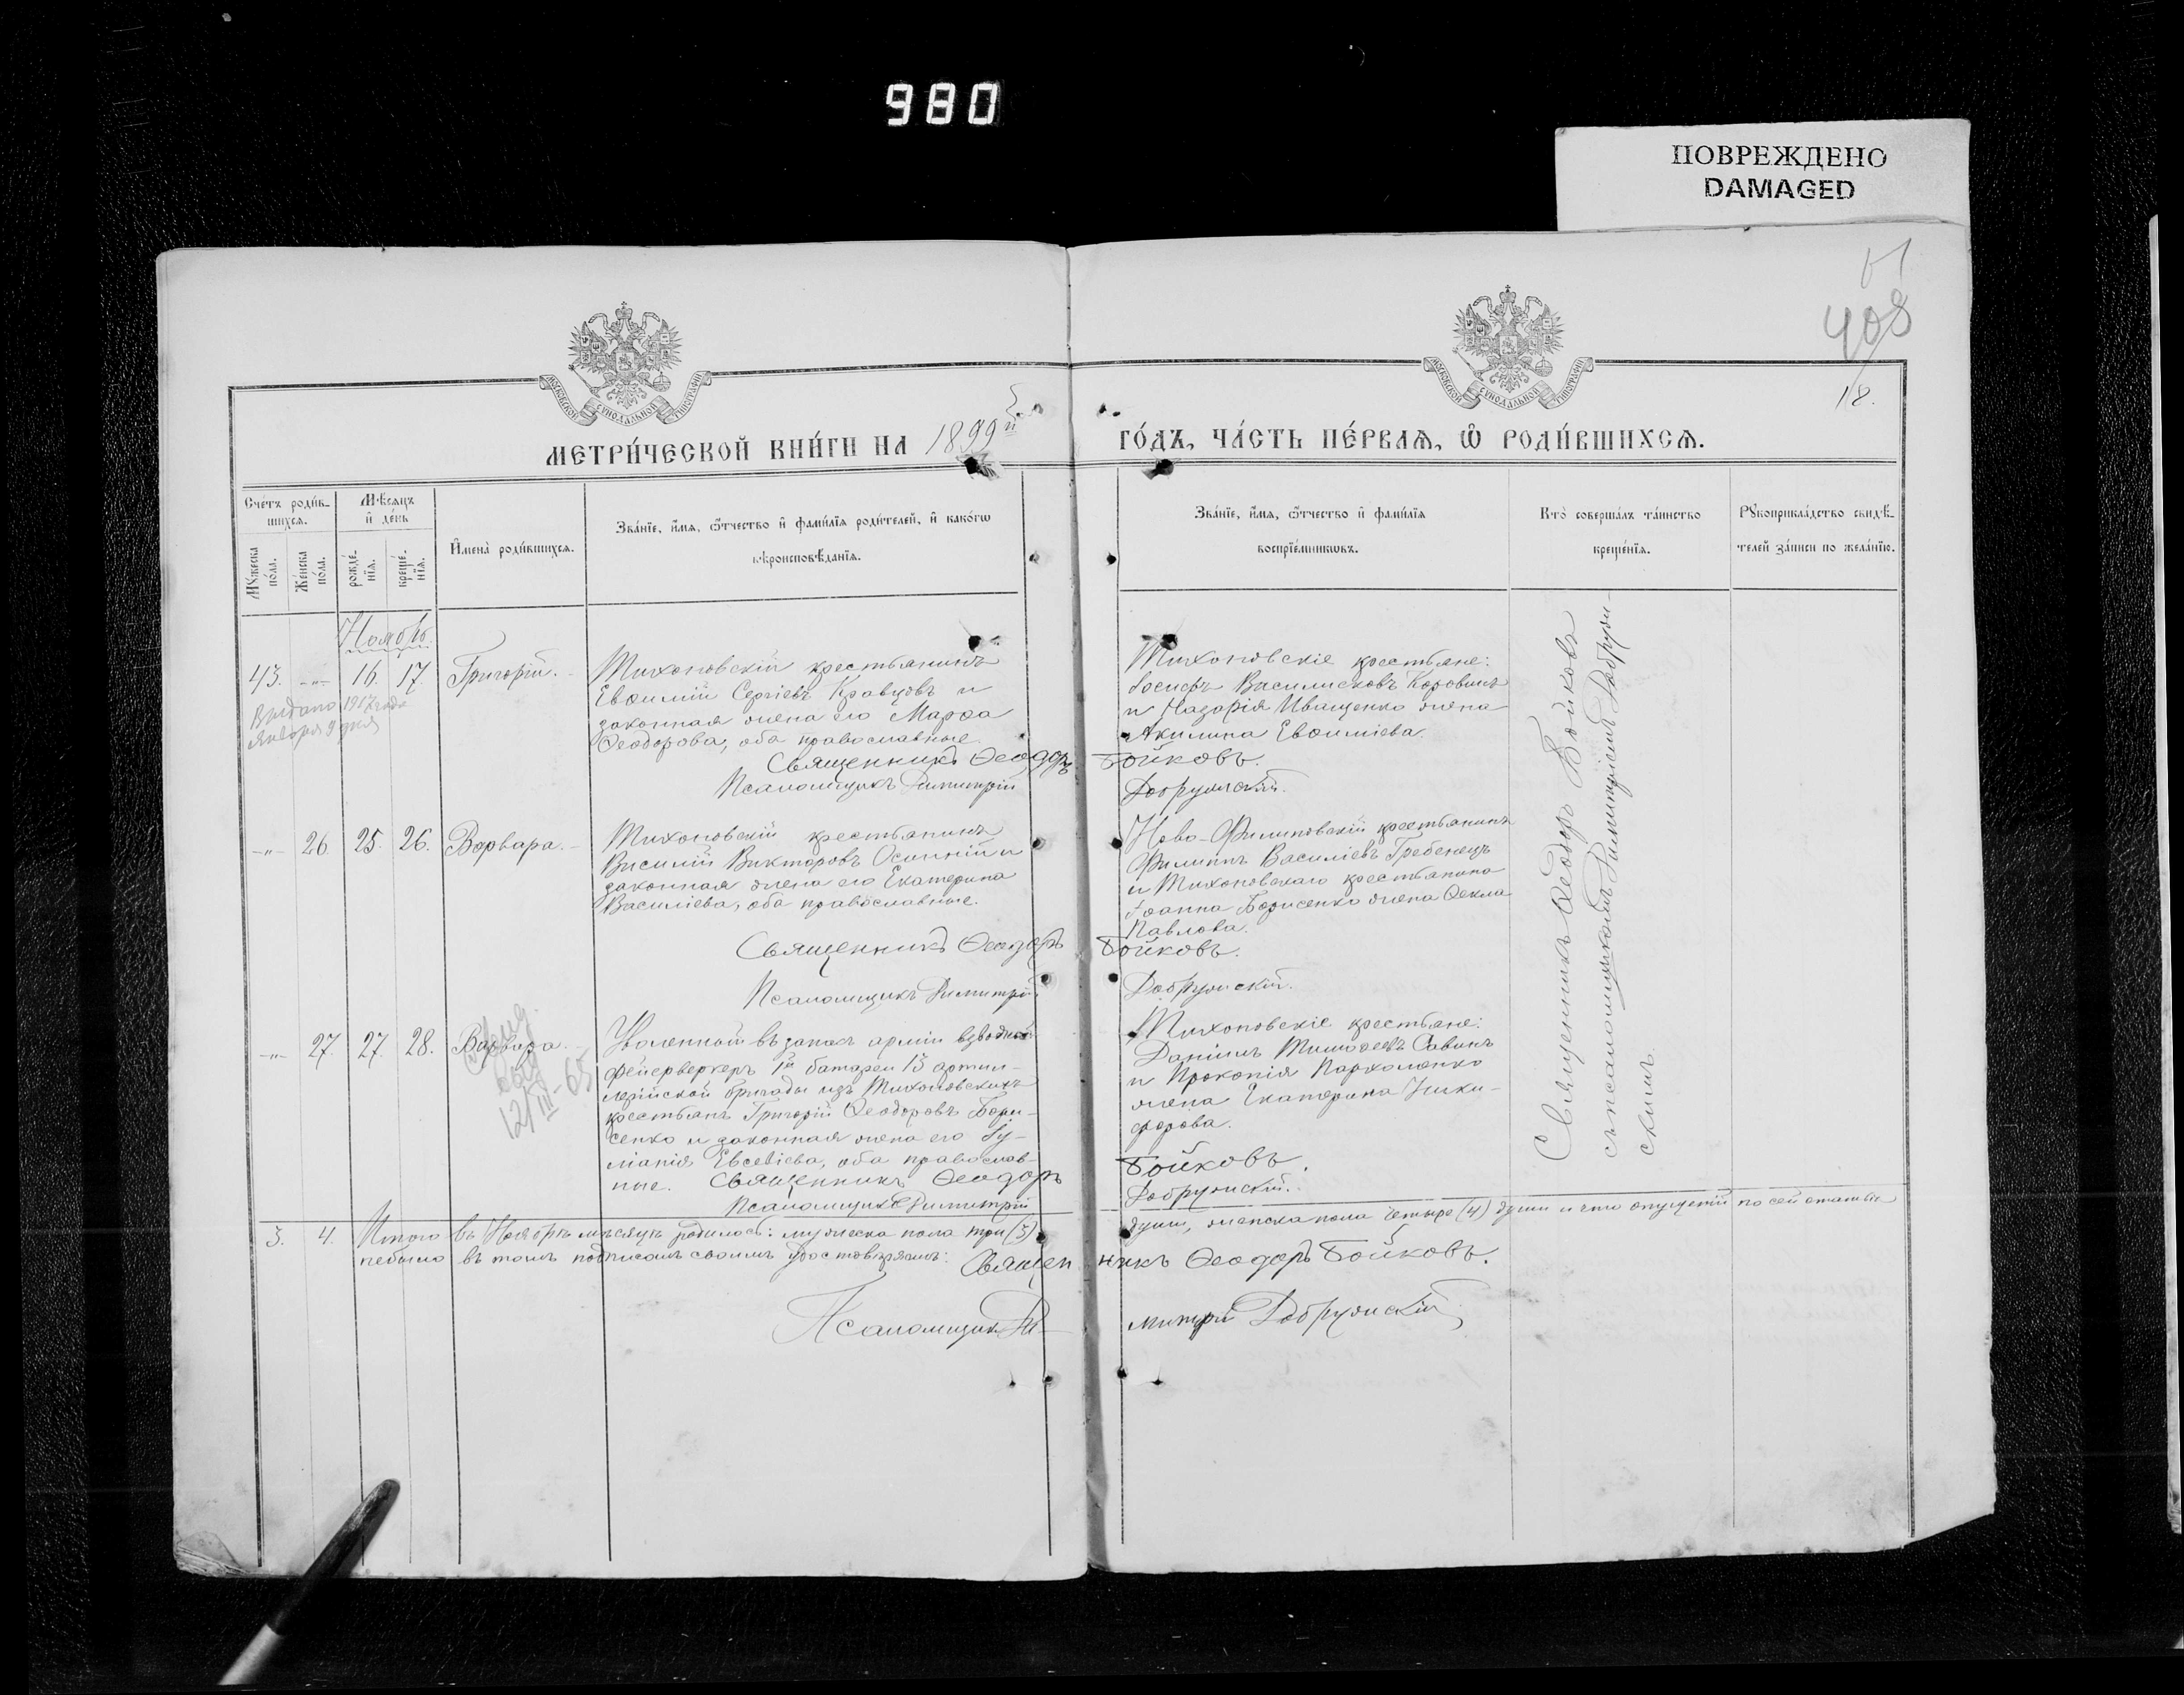 980
ПОВРЕЖДЕНО
DAMAGED
408
18.
МОСКОВСКОЙ СѴНОДАЛЬНОЙ ТИПОГРАФІИ
МОСКОВСКОЙ СѴНОДАЛЬНОЙ ТИПОГРАФІИ
МЕТРИ́ЧЕСКОЙ КНИ́ГИ НА 1899й ГО́ДЪ, ЧА́СТЬ ПЕ́РВАѦ, Ѡ҆ РОДИ́ВШИХСѦ.
Сче́тъ роди́в-
шихсѧ.
Мꙋ́жеска по́ла.
Же́нска по́ла.
Мѣ́сѧцъ
и҆ де́нь
рожде́-
нїѧ.
креще́-
нїѧ.
И҆мена̀ роди́вшихсѧ.
Зва́нїе, и҆́мѧ, ѻ҆́тчество и҆ фамѝлїѧ роди́телей, и҆ како́гѡ
вѣроисповѣ́данїѧ.
Зва́нїе, и҆́мѧ, ѻ҆́тчество и҆ фамѝлїѧ
воспрїе́мникѡвъ.
Кто̀ соверша́лъ та́инство
креще́нїѧ.
Рꙋкоприкла́дство свидѣ́-
телей за́писи по жела́нїю.
Ноябрь.
43. -"- 16. 17. Григорій.
Выдано 1917 года
января 9 дня
Тихоновскій крестьянинъ
Евѳимій Сергіевъ Кравцовъ и
законная жена его Марѳа
Ѳеодорова, оба православные.
Священникъ Ѳеодоръ Бойковъ.
Псаломщикъ Димитрій Добружскій.
Тихоновскіе крестьяне:
Іосифъ Василисковъ Коровинъ
и Назарія Иващенко жена
Акилина Евѳиміева.
-"- 26. 25. 26. Варвара.
Тихоновскій крестьянинъ
Василій Викторовъ Осинній и
законная жена его Екатерина
Василіева, оба православные.
Священникъ Ѳеодоръ Бойковъ.
Псаломщикъ Димитрій Добружскій.
Ново-Филиповскій крестьянинъ
Филиппъ Василіевъ Гребенецъ
и Тихоновскаго крестьянина
Іоанна Борисенко жена Ѳекла
Павлова.
-"- 27. 27. 28. Варвара.
12/III-65
Уволенный въ запасъ арміи взводный
фейерверкеръ 1й батареи 13 артил-
лерійской бригады изъ Тихоновскихъ
крестьянъ Григорій Ѳеодоровъ Бори-
сенко и законная жена его Іу-
ліанія Евсевіева, оба православ-
ные. Священникъ Ѳеодоръ Бойковъ.
Псаломщикъ Димитрій Добружскій.
Тихоновскіе крестьяне:
Даніилъ Тимоѳеевъ Савинъ
и Прокопія Пархоменко
жена Екатерина Ники-
форова.
Священникъ Ѳеодоръ Бойковъ
съ псаломщикомъ Димитріемъ Добруж-
скимъ.
3. 4. Итого въ Ноябрѣ мѣсяцѣ родилось: мужеска пола три (3) души, женска пола четыре (4) души и что опущеній по сей статьѣ
небыло въ томъ подписомъ своимъ удостовѣряемъ: Священникъ Ѳеодоръ Бойковъ.
Псаломщикъ Димитрій Добружскій